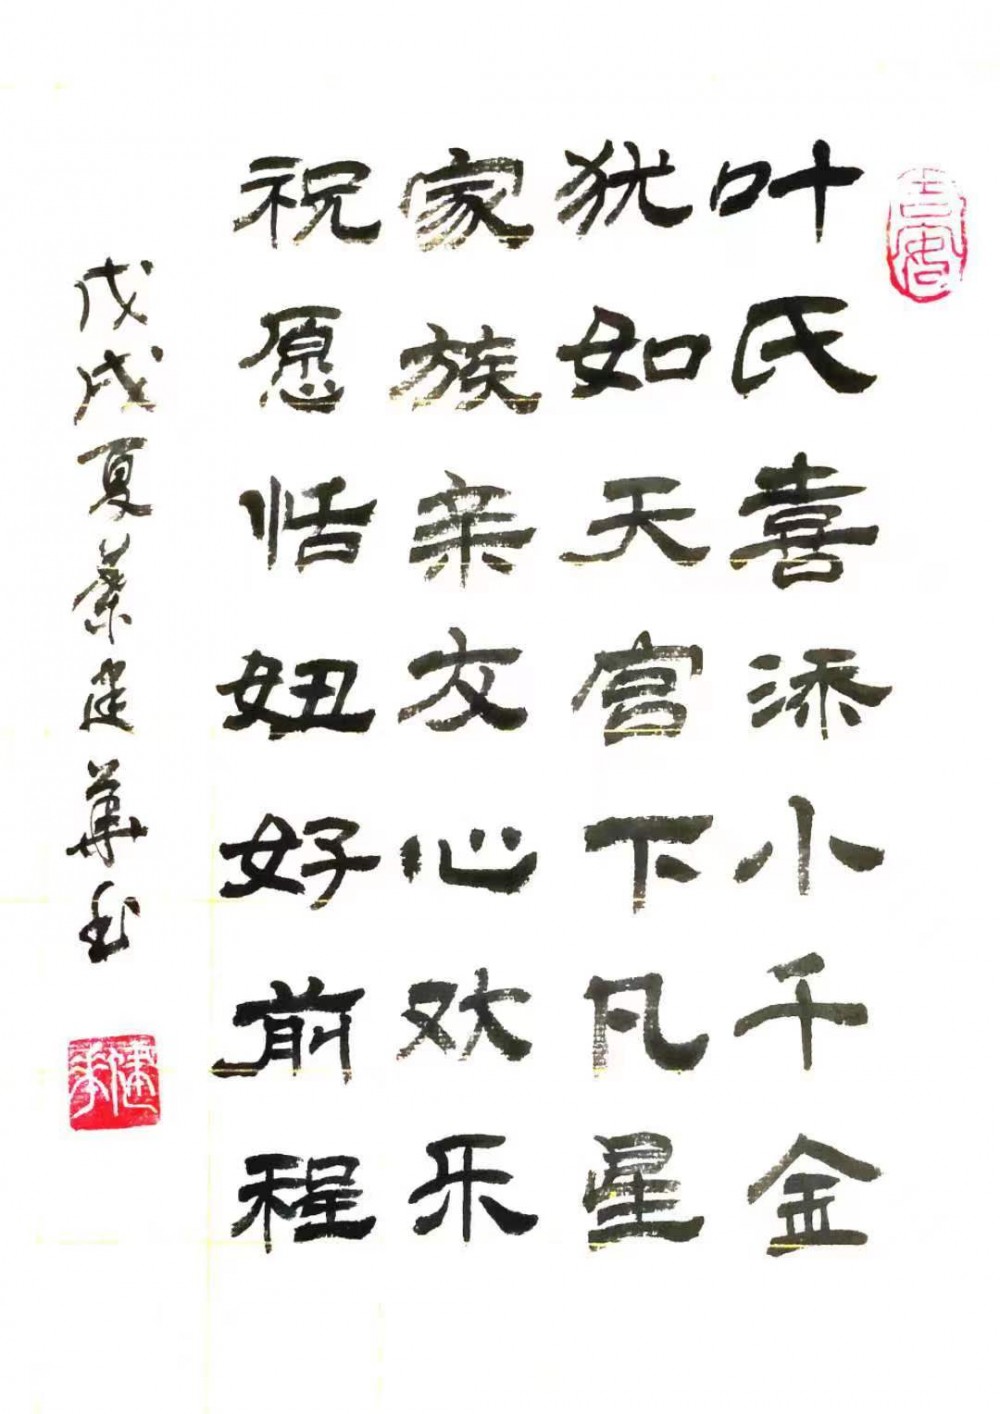 叶氏喜添小千金
犹如天官下凡星
家族亲友心欢乐
祝愿恬妞好前程
戊戌夏蔡建华书
建华